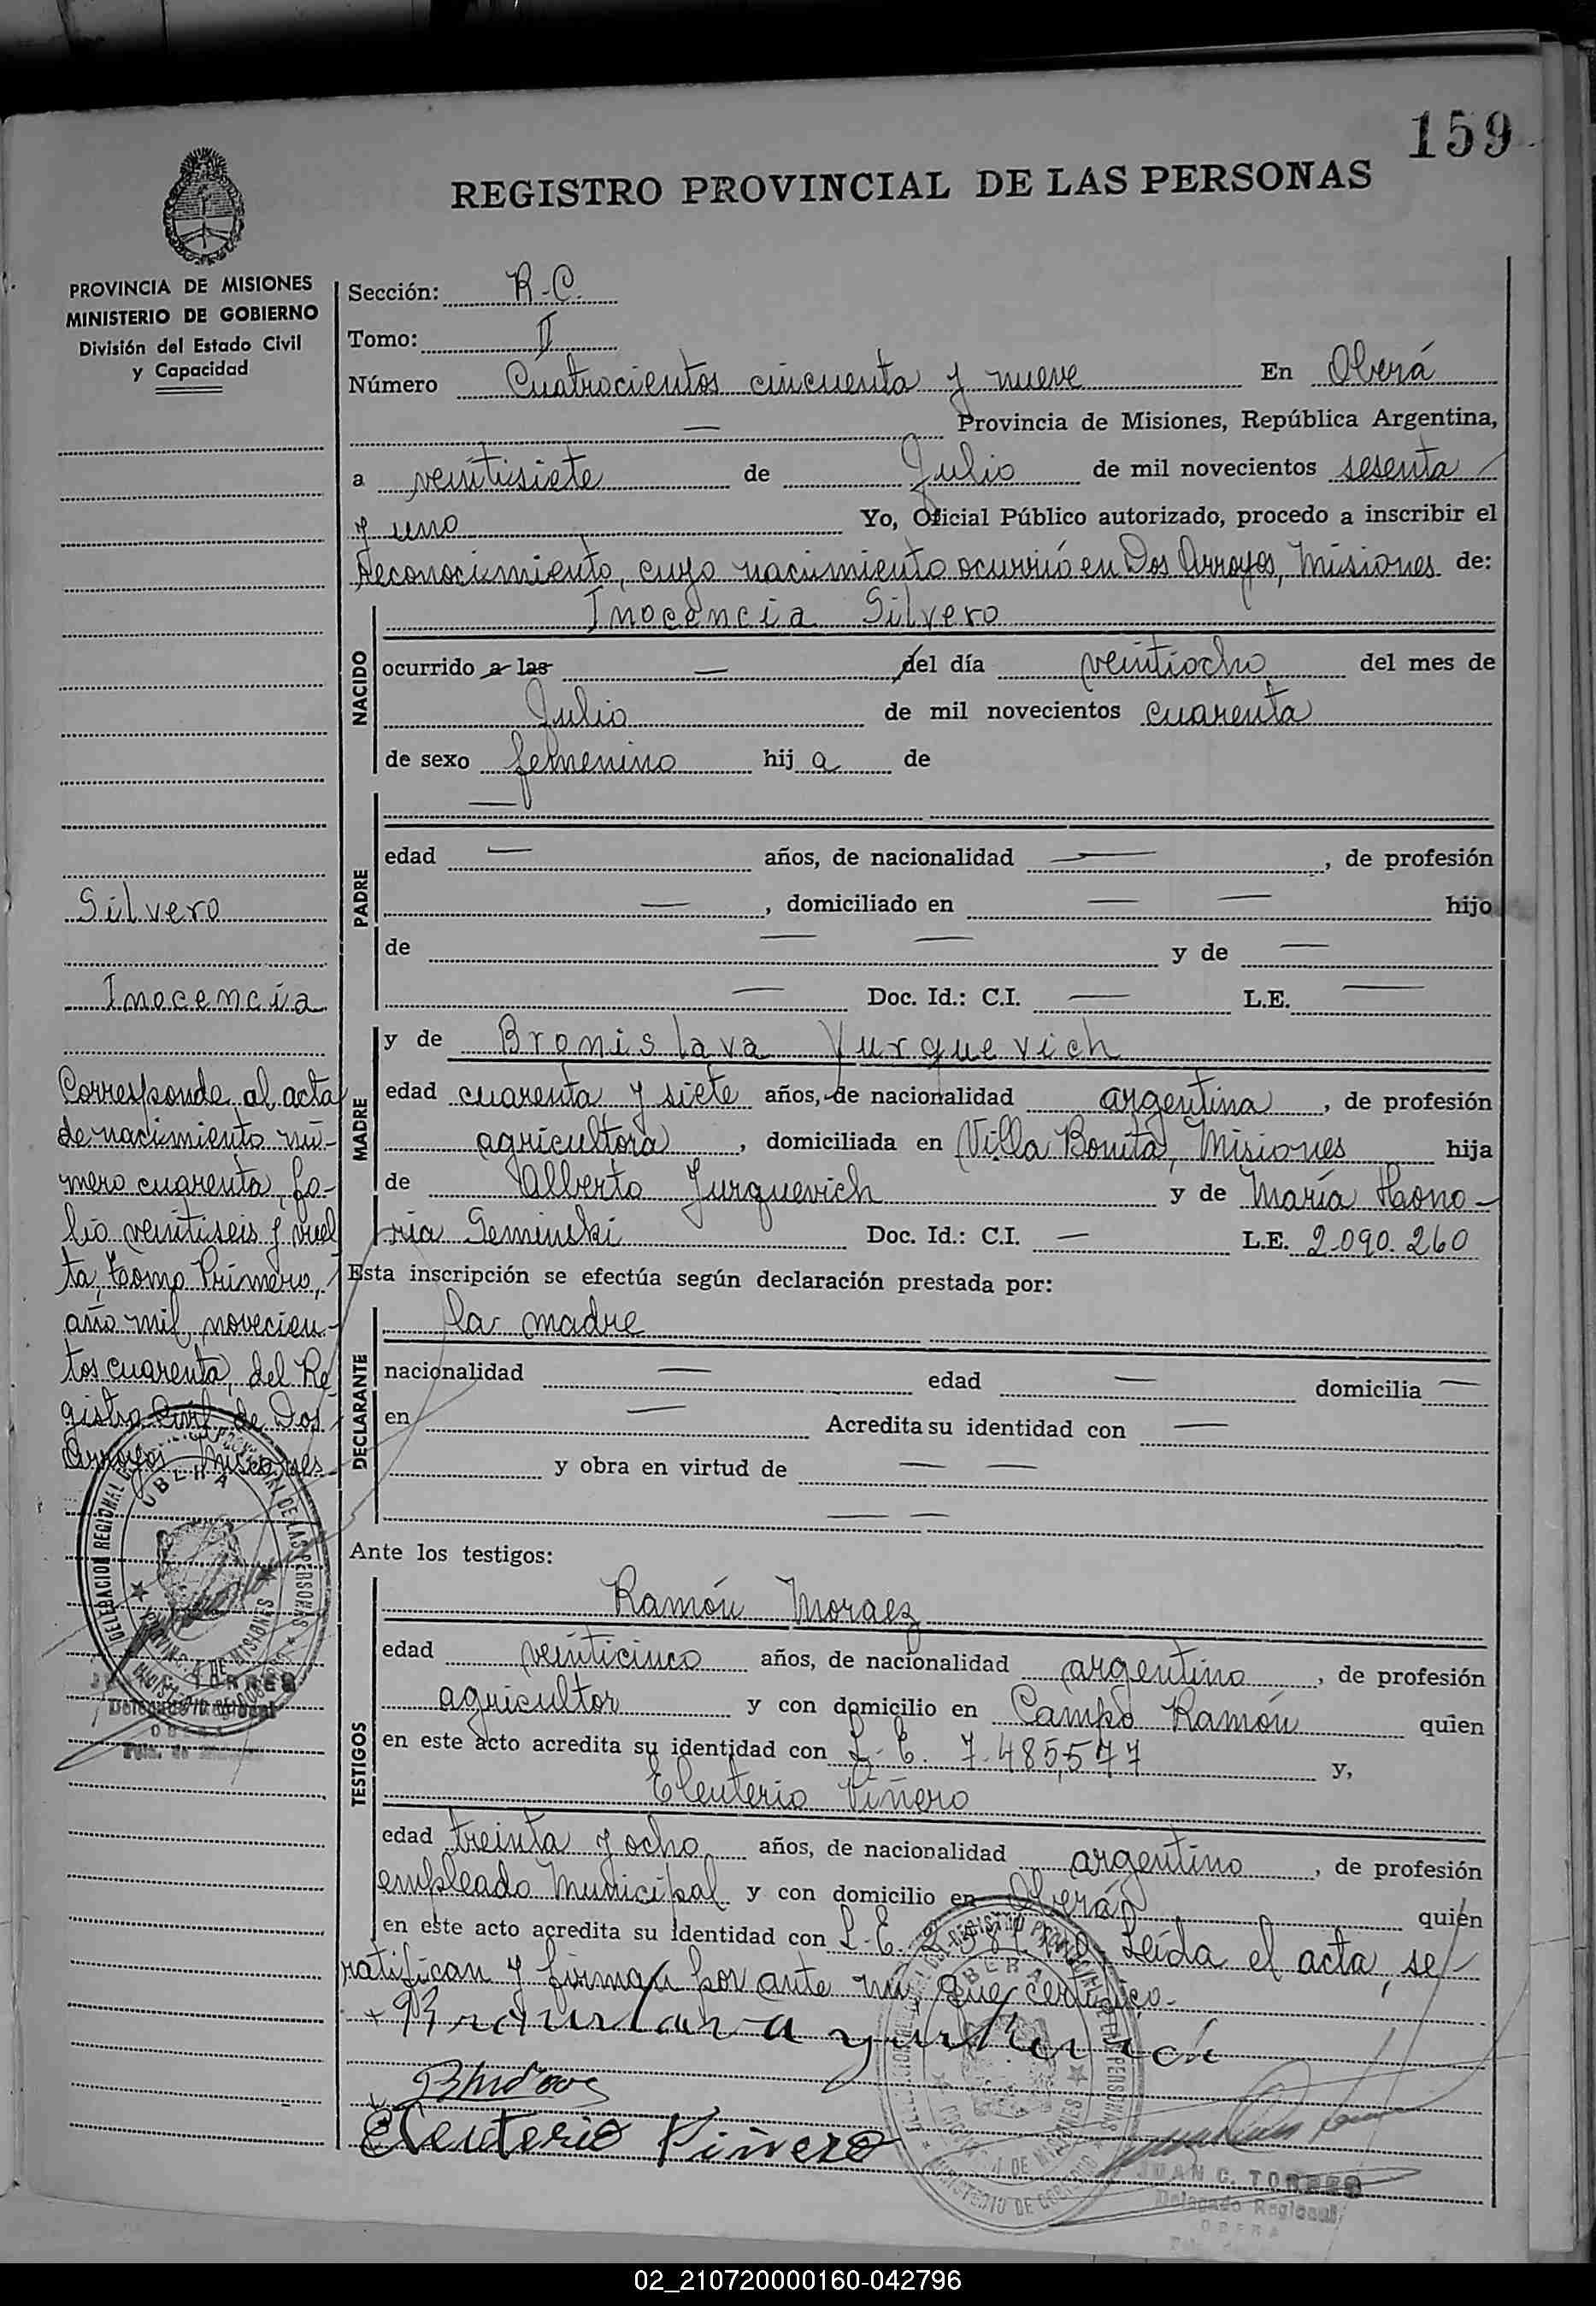 159
REGISTRO PROVINCIAL DE LAS PERSONAS
PROVINCIA DE MISIONES
MINISTERIO DE GOBIERNO
División del Estado Civil
y Capacidad
Silvero
Inocencia
Corresponde al acta
de nacimiento nú-
mero cuarenta, fo-
lio veintiseis y vuel
ta, tomo Primero,
año mil novecien-
tos cuarenta, del Re
gistro Civil de Dos
Arroyos Misiones
Sección: R.C.
Tomo: II
Número Cuatrocientos cincuenta y nueve En Oberá
— Provincia de Misiones, República Argentina,
a veintisiete de Julio de mil novecientos sesenta
y uno Yo, Oficial Público autorizado, procedo a inscribir el
Reconocimiento, cuyo nacimiento ocurrió en Dos Arroyos, Misiones de:
NACIDO
Inocencia Silvero
ocurrido a las — del día veintiocho del mes de
Julio de mil novecientos cuarenta
de sexo femenino hij a de
PADRE
—
edad — años, de nacionalidad —, de profesión
—, domiciliado en — — hijo
de — — y de —
— Doc. Id.: C.I. — L.E. —
MADRE
y de Bronislava Yurquevich
edad cuarenta y siete años, de nacionalidad argentina, de profesión
agricultora, domiciliada en Villa Bonita, Misiones hija
de Alberto Jurquevich y de María Hono-
ria Seminski Doc. Id.: C.I. — L.E. 2.090.260
Esta inscripción se efectúa según declaración prestada por:
DECLARANTE
la madre
nacionalidad — edad — domicilia —
en — Acredita su identidad con —
y obra en virtud de — —
— —
Ante los testigos:
TESTIGOS
Ramón Moraez
edad veinticinco años, de nacionalidad argentino, de profesión
agricultor y con domicilio en Campo Ramón quien
en este acto acredita su identidad con L.E. 7.485.577 y,
Eleuterio Piñero
edad treinta y ocho años, de nacionalidad argentino, de profesión
empleado Municipal y con domicilio en Oberá quien
en este acto acredita su identidad con L.E. Leida el acta, se
ratifican y firman por ante mi, que certifico.
Eleuterio Piñero
JUAN C. TORRES
Delegado Regional
OBERA
DELEGACION REGIONAL DEL REGISTRO PROVINCIAL DE LAS PERSONAS
OBERA
PROVINCIA DE MISIONES
MINISTERIO DE GOBIERNO
02_210720000160-042796